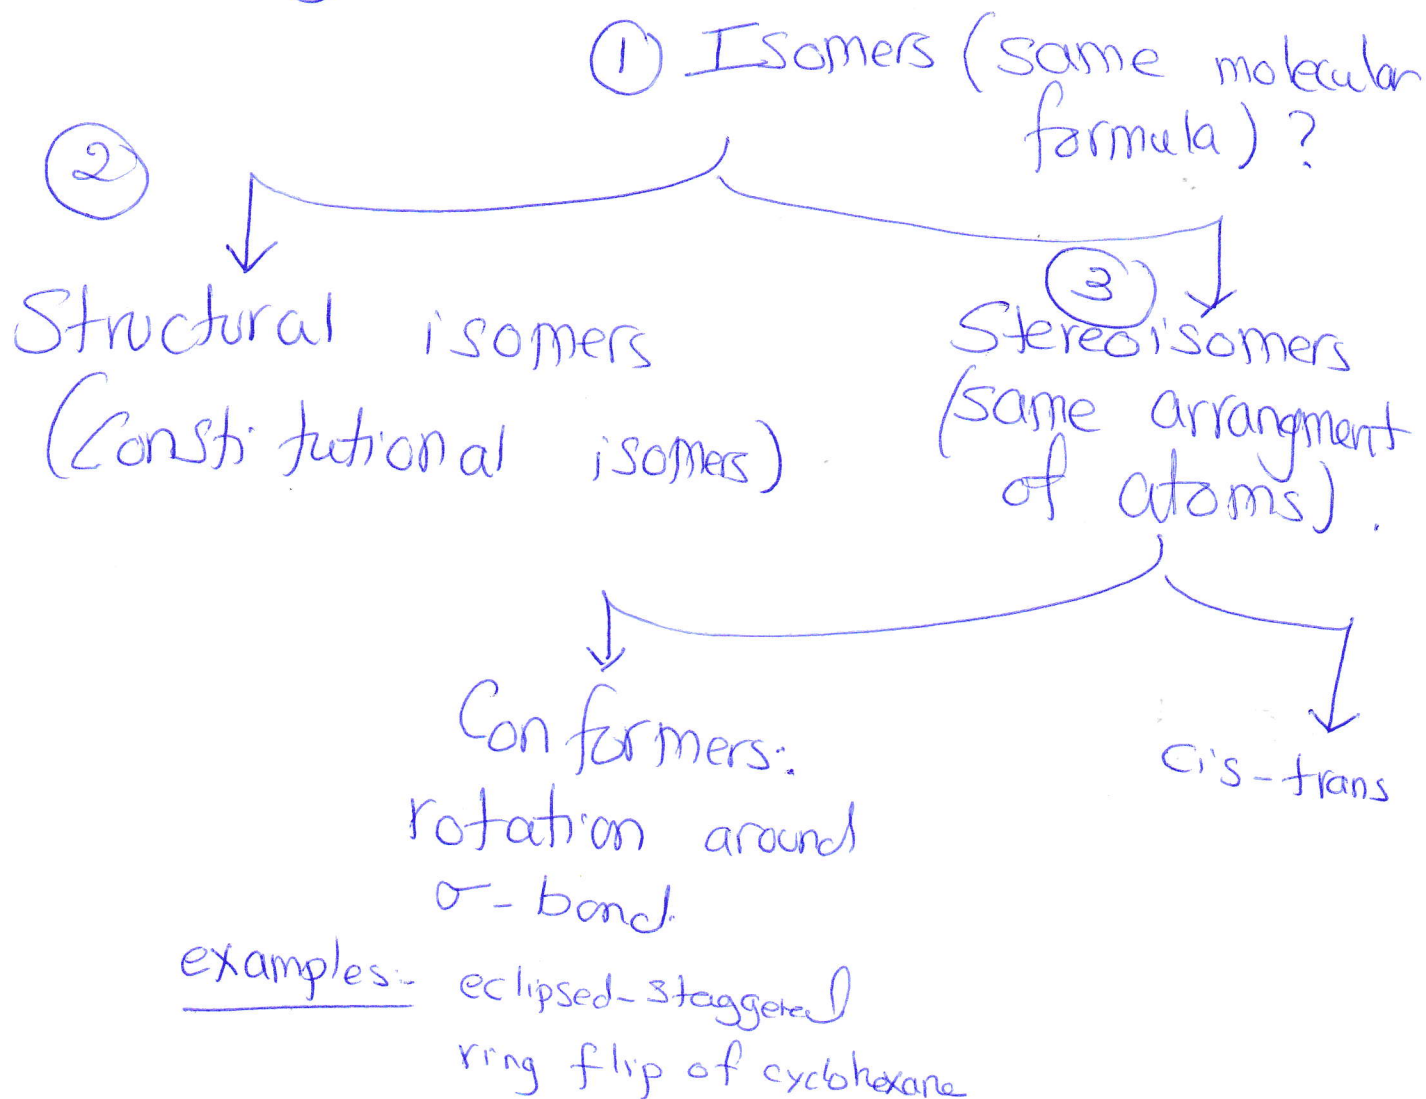 ① Isomers (same molecular
formula) ?
②
Structural isomers
(Constitutional isomers)
③
Stereoisomers
(same arrangment
of atoms).
Conformers:
rotation around
σ-bond.
cis-trans
examples:- eclipsed-staggered
ring flip of cyclohexane